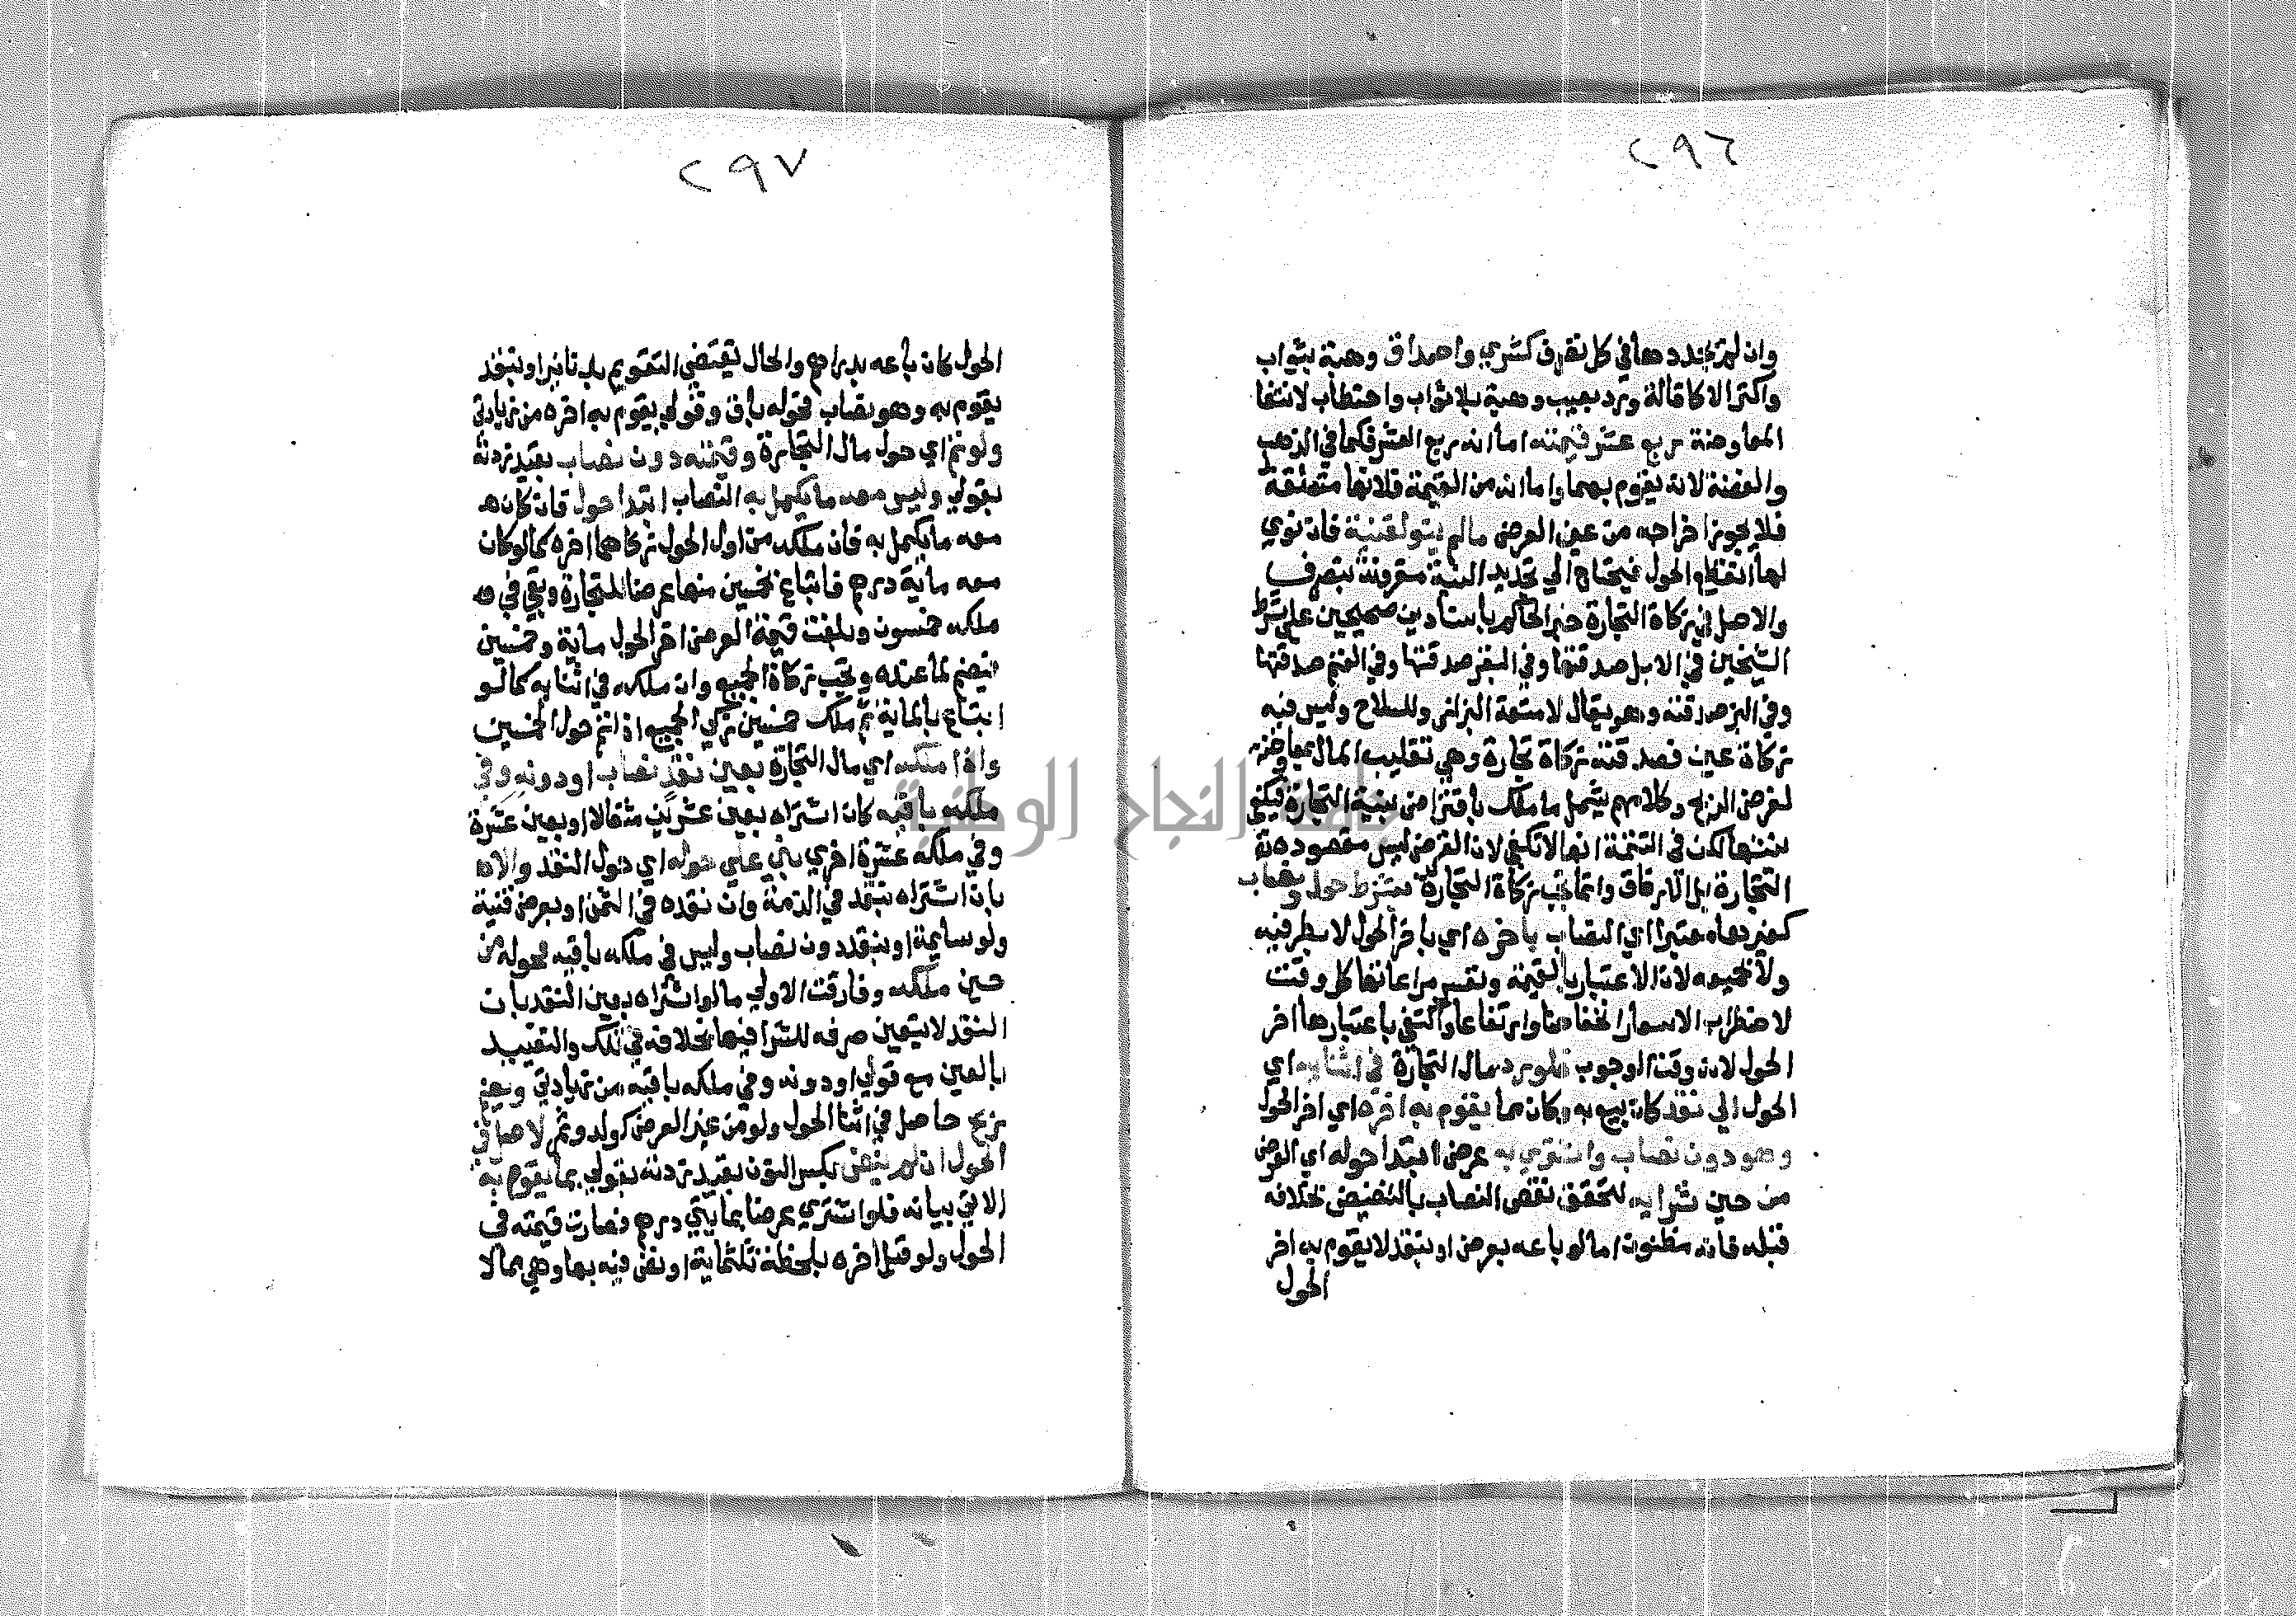 ٢٩٦
وان لم يجددها في كل تصرف كشري واصداق وهبة بثواب
واكترا لا كاقالة ورد بعيب وهبة بلا ثواب واحتطاب لانتفا
المعاوضة ربع عشر قيمته اما انه ربع العشر فكما في الذهب
والفضة لانه يقوم بهما واما انه من القيمة فلانها متعلقة
فلا يجوز اخراجه من عين العرض مالم ينو لقنية فان نوي
لها انقطع الحول فيحتاج الي تجديد النية مقرونة بتصرف
والاصل في زكاة التجارة خبر الحاكم باسنادين صحيحين علي شرط
الشيخين في الابل صدقتها وفي البقر صدقتها وفي الغنم صدقتها
وفي البز صدقته وهو يقال لامتعة البزاز وللسلاح وليس فيه
زكاة عين فصدقته زكاة تجارة وهي تقليب المال بمعاوضة
لغرض الربح وكلامهم يشمل ما ملك باقتراض بنية التجارة فيكفي
نيتها لكن في التتمة انها لا تكفي لان القرض ليس مقصوده
التجارة بل الارفاق وانما تجب زكاة التجارة بشرط حول ونصاب
كغيرها معتبرا اي النصاب باخره اي باخر الحول لا بطرفيه
ولا بجميعه لان الاعتبار بالقيمة وتعسر مراعاتها كل وقت
لاضطراب الاسعار انخفاضا وارتفاعا واكتفي باعتبارها اخر
الحول لانه وقت الوجوب فلو رد مال التجارة في اثنايه اي
الحول الي نقد كان بيع به وكان مما يقوم به اخره اي اخر الحول
وهو دون نصاب واشتري به عرض ابتدا حوله اي العرض
من حين شرايه لتحقق نقص النصاب بالتنضيض بخلافه
قبله فانه مظنون اما لو باعه بعرض او بنقد لا يقوم به اخر
الحول
٢٩٧
الحول كان باعه بدراهم والحال يقتضي التقويم بدنانير او بنقد
يقوم به وهو نصاب فحوله باق وقولي يقوم به اخره من زيادتي
ولو تم اي حول مال التجارة وقيمته دون نصاب بقيد زدته
بقولي وليس معه ما يكمل به النصاب ابتدا حول فان كان
معه ما يكمل به فان ملكه من اول الحول زكاهما اخره كما لو كان
معه ماية درهم فابتاع بخمسين منها عرضا للتجارة وبقي في
ملكه خمسون وبلغت قيمة العرض اخر الحول ماية وخمسين
فيضم لما عنده وتجب زكاة الجميع وان ملكه في اثنايه كما لو
ابتاع بالماية ثم ملك خمسين زكي الجميع اذا تم حول الخمسين
واذا ملكه اي مال التجارة بعين نقد نصاب او دونه وفي
ملكه باقيه كان اشتراه بعين عشرين مثقالا او بعين عشرة
وفي ملكه عشرة اخري بني علي حوله اي حول النقد والا
بان اشتراه بنقد في الذمة وان نقده في الثمن او بعرض قنية
ولو سايمة او بنقد دون نصاب وليس في ملكه باقيه فحوله من
حين ملكه وفارقت الاولي ما لو اشتراه بعين النقد بان
النقد لا يتعين صرفه للشرا فيها بخلافه في تلك والتقييد
بالعين مع قولي او دونه وفي ملكه باقيه من زيادتي ويضم
ربح حاصل في اثنا الحول ولو من عين العرض كولد وثمر لاصل في
الحول ان لم ينض بكسر النون بقيد زدته بقولي بما يقوم به
الاتي بيانه فلو اشتري عرضا بمايتي درهم فصارت قيمته في
الحول ولو قبل اخره بلحظة ثلثماية او نض فيه بها وهي مما لا